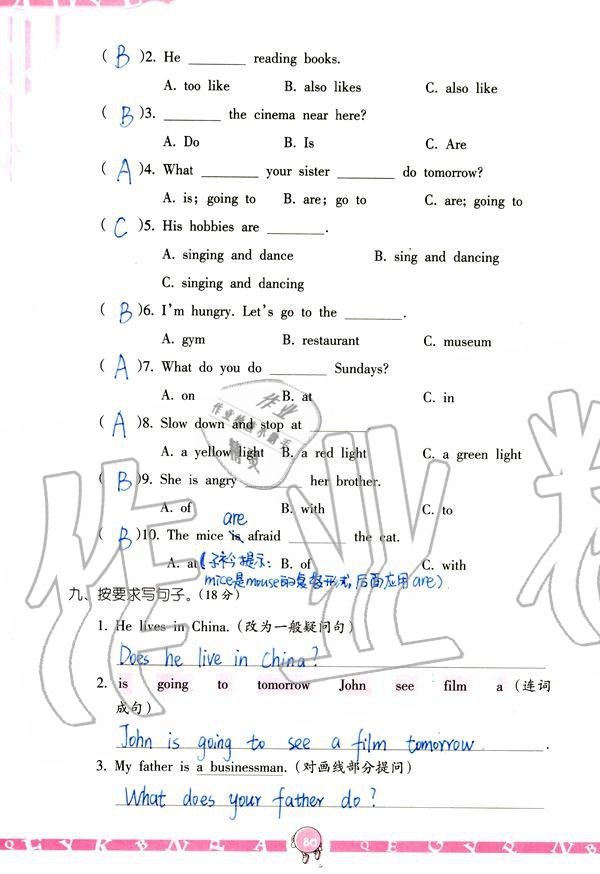 ( B )2. He ________ reading books.
A. too like B. also likes C. also like
( B )3. ________ the cinema near here?
A. Do B. Is C. Are
( A )4. What ________ your sister ________ do tomorrow?
A. is; going to B. are; go to C. are; going to
( C )5. His hobbies are ________.
A. singing and dance B. sing and dancing
C. singing and dancing
( B )6. I'm hungry. Let's go to the ________.
A. gym B. restaurant C. museum
( A )7. What do you do ________ Sundays?
A. on B. at C. in
( A )8. Slow down and stop at ________
A. a yellow light B. a red light C. a green light
( B )9. She is angry ________ her brother.
A. of B. with C. to
are
( B )10. The mice is afraid ________ the cat.
A. at (子衿提示: B. of C. with
mice是mouse的复数形式,后面应用are)
九、按要求写句子。(18分)
1. He lives in China. (改为一般疑问句)
Does he live in China?
2. is going to tomorrow John see film a (连词
成句)
John is going to see a film tomorrow.
3. My father is a businessman. (对画线部分提问)
What does your father do?
80
作业
作业检查小助手
精灵
作业精